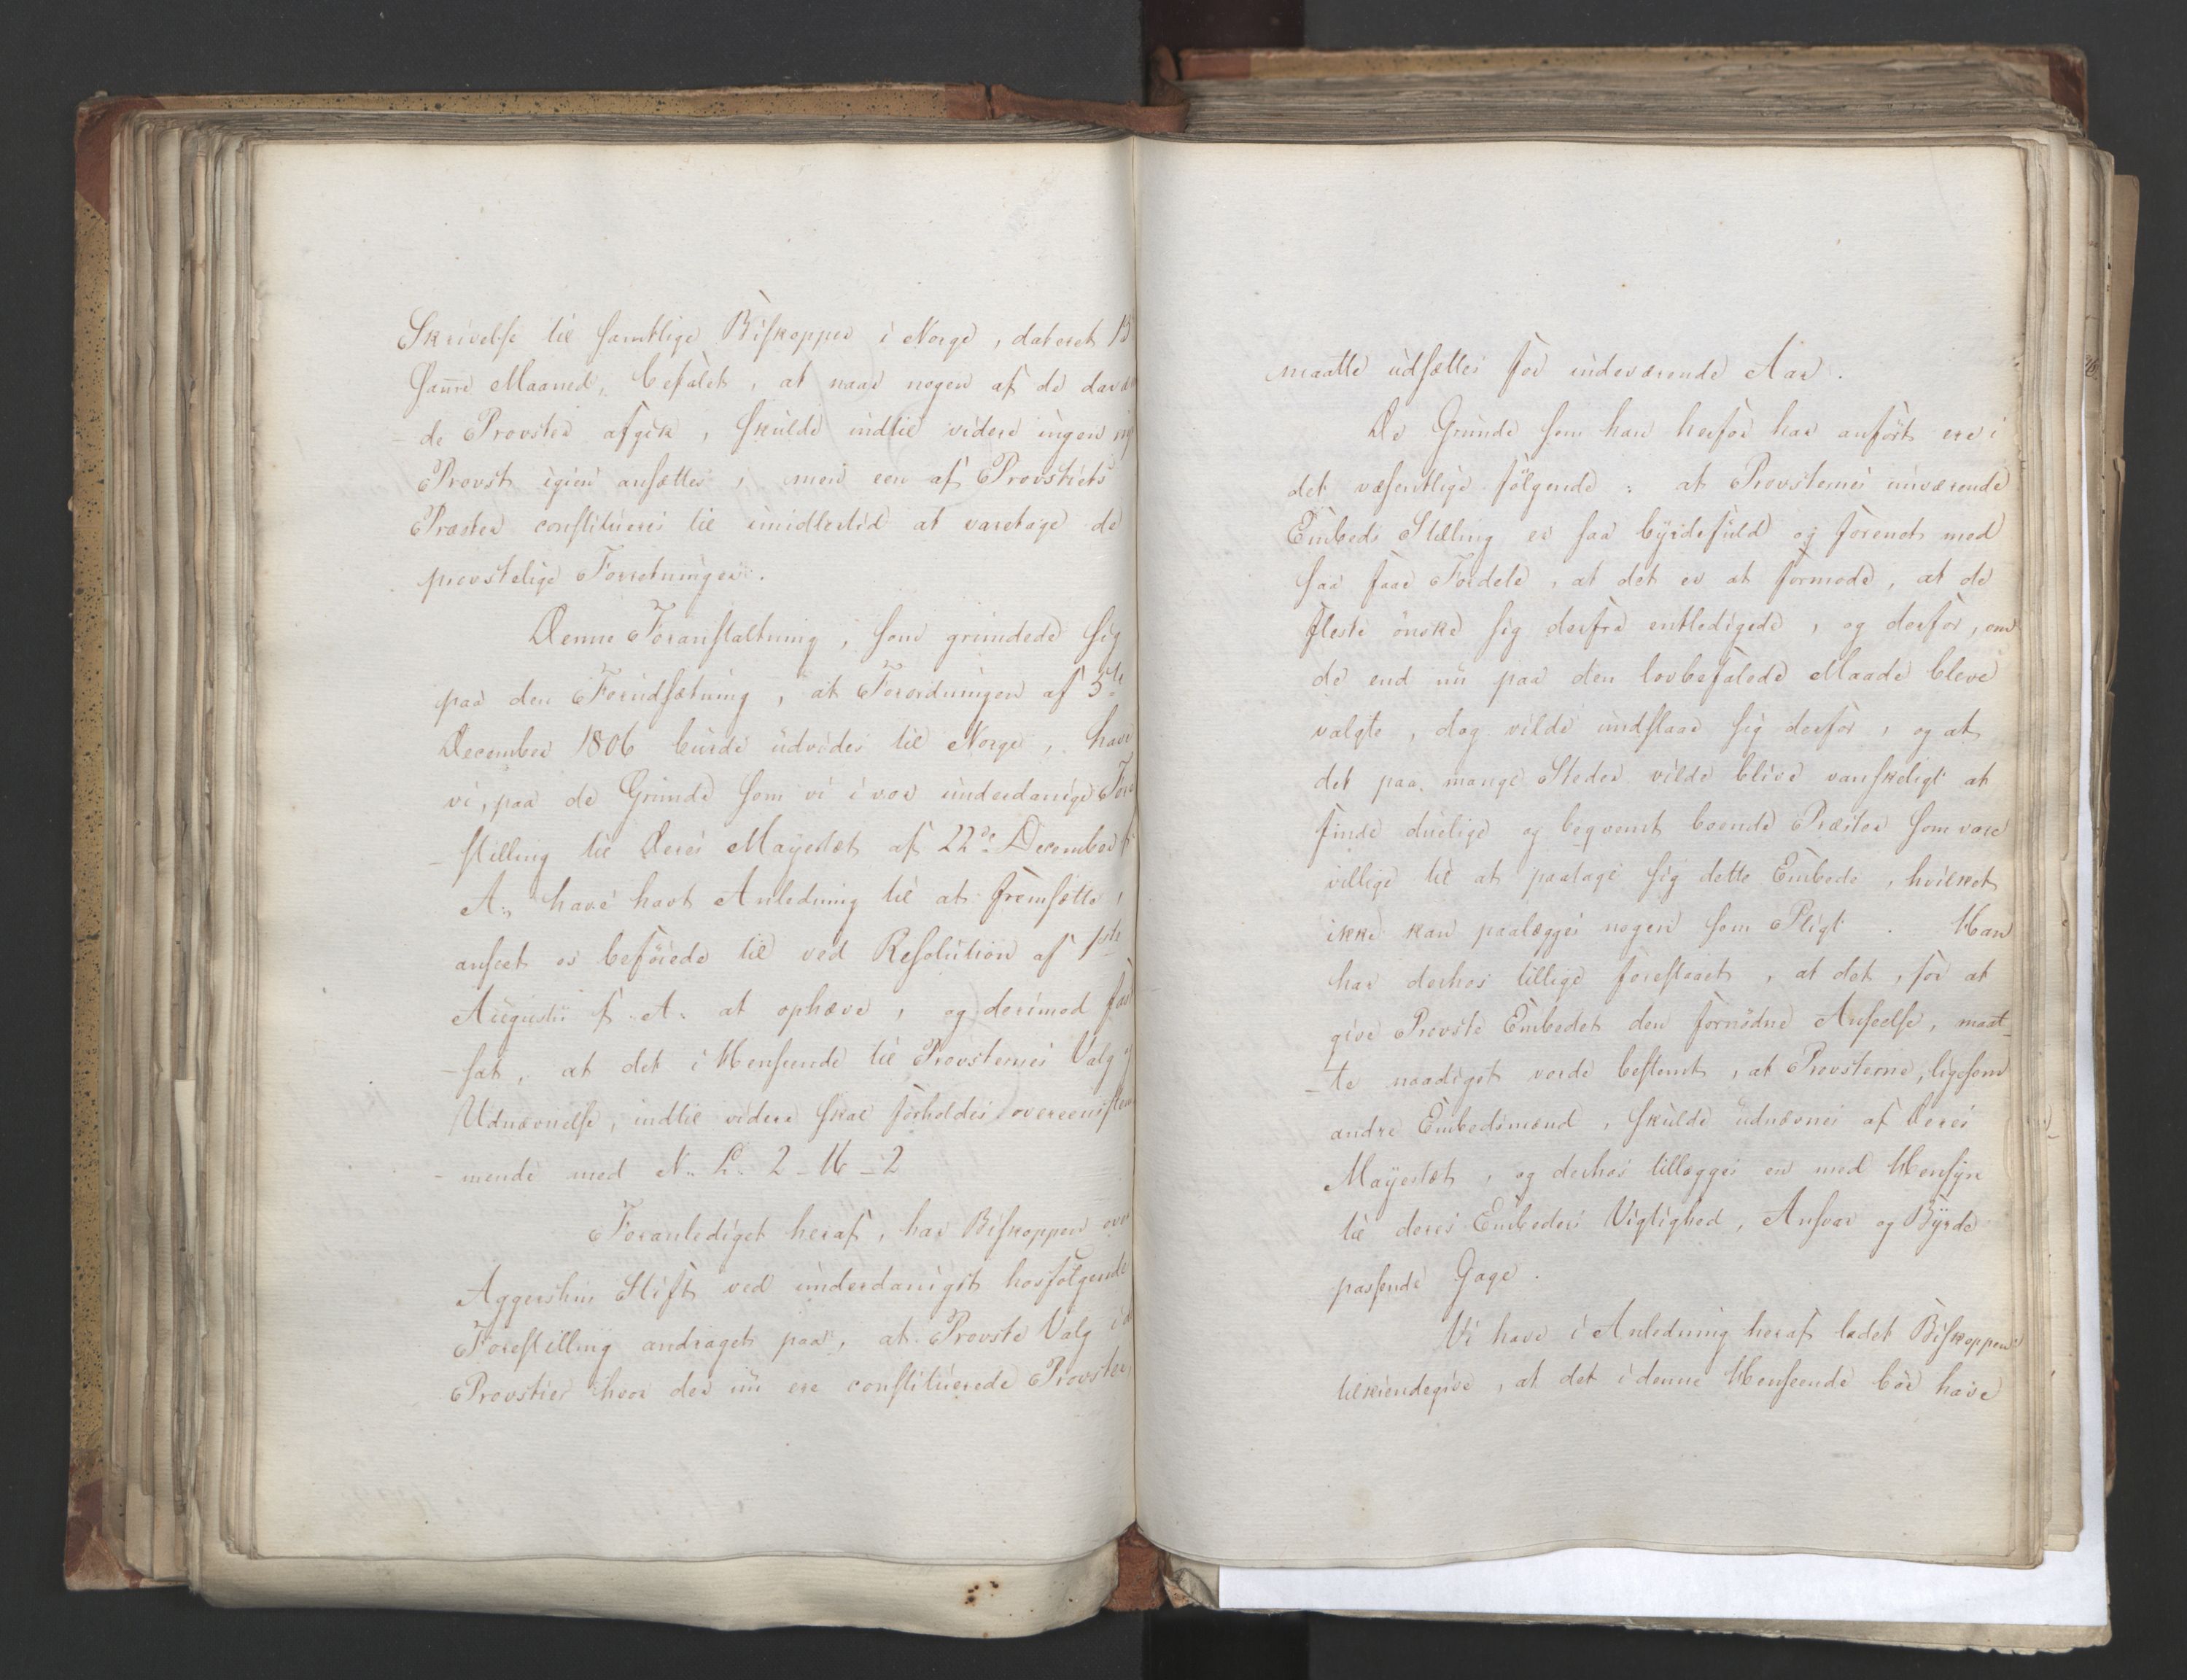 Skrivelse til samtlige Biskopper i Norge, dateret 15
samme Maaned, befalet, at naar nogen af de davæ
-de Provster afgik, skulde indtil videre ingen ny
Provst igien ansættes, men een af Provstiets
Præster constitueres til imidlertid at varetage de
provstelige Forretninger.
Denne Foranstaltning, som grundede sig
paa den Forudsætning, at Forordningen af 5te
December 1806 burde udvides til Norge, have
vi, paa de Grunde som vi i vor underdanige Fore
-stilling til Deres Mayestæt af 22de December f
A: have havt Anledning til at fremsætte,
anseet os beföiede til ved Resolution af 1ste
Augusti f. A. at ophæve, og derimod fast
-sat, at det i Henseende til Provsternes Valg og
Udnævnelse, indtil videre skal forholdes overeensstem
-mende med N: L: 2-16-2
Foranlediget heraf, har Biskoppen over
Aggershus Stift ved underdanigst hosfölgende
Forestilling andraget paa, at Provste Valg i de
Provstier hvor der nu ere constituerede Provster,
maatte udsættes for indeværende Aar.
De Grunde som han herfor har anfört ere i
det væsentlige fölgende: at Provsternes nuværende
Embeds Stilling er saa byrdefuld og forenet med
saa faae Fordele, at det er at formode, at de
fleste önske sig derfra entledigede, og derfor, om
de end nu paa den lovbefalede Maade bleve
valgte, dog vilde undslaae sig derfor, og at
det paa mange Steder vilde blive vanskeligt at
finde duelige og beqvemt boende Præster som vare
villige til at paatage sig dette Embede, hvilket
ikke kan paalægges nogen som Pligt. Han
har derhos tillige foreslaaet, at det, for at
give Provste Embedet den fornödne Anseelse, maat
-te naadigst vorde bestemt, at Provsterne, ligesom
andre Embedsmænd, skulde udnævnes af Deres
Mayestæt, og derhos tillægges en med Hensyn
til deres Embeders Vigtighed, Ansvar og Byrde
passende Gage.
Vi have i Anledning heraf ladet Biskoppen
tilkiendegive, at det i denne Henseende bör have